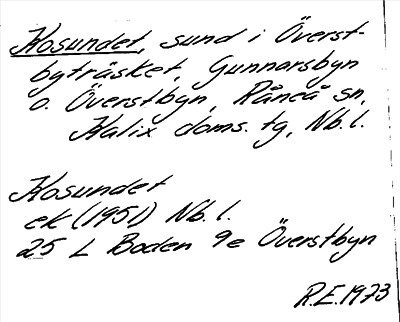 Kosundet, sund i Överst-
byträsket, Gunnarsbyn
o. Överstbyn, Råneå sn,
Kalix doms. tg, Nb. l.
Kosundet
ek (1951) Nb. l.
25 L Boden 9e Överstbyn
R.E. 1973